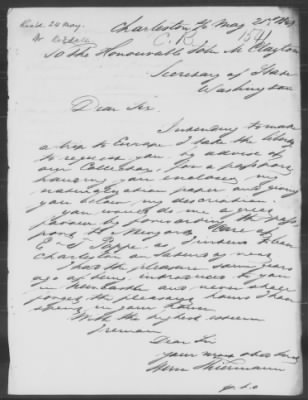 Recd 24 May.
Charleston S/C May 21st 1849
C. R. 1541
To The Honourable John M Clayton
Secretary of State
Washington
Dear Sir
Intending to make
a trip to Europe I take the liberty
to request you by advice of
our Collector, for a passport,
having you enclosed my
naturalization paper and giving
you below my description.
You would do me a great
favour by forwarding the pass-
port to care of
E as I intend to leave
Charleston on Saturday next
I had the pleasure some years
ago of being introduced to you
in New Castle and never shall
forget the pleasant hours I have
spent in your
With the highest esteem
I remain
Dear Sir
your most obed. Serv.
Herm Thiermann